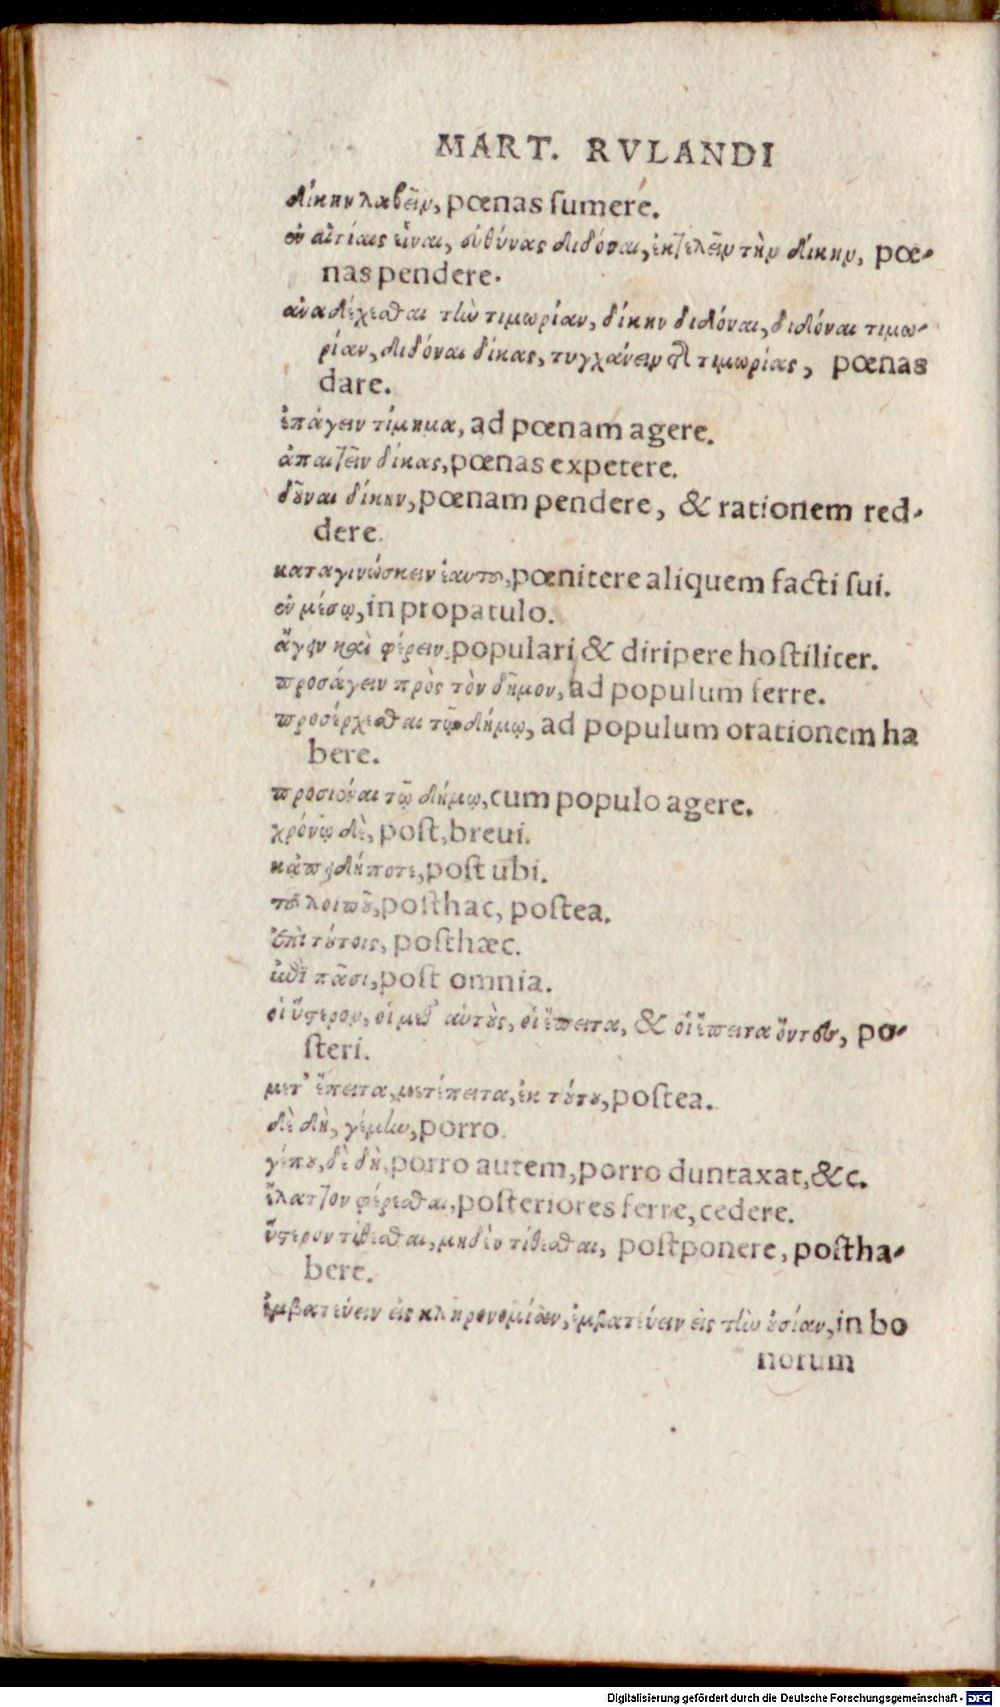 MART. RVLANDI
δίκην λαβεῖν, pœnas ſumere.
ἐν αἰτίαις εἶναι, εὐθύνας διδόναι, ἐκτελεῖν τὴν δίκην, pœ-
nas pendere.
ἀναδέχεσθαι τὴν τιμωρίαν, δίκην διδόναι, διδόναι τιμω-
ρίαν, διδόναι δίκας, τυγχάνειν τῆς τιμωρίας, pœnas
dare.
ἐπάγειν τίμημα, ad pœnam agere.
ἀπαιτεῖν δίκας, pœnas expetere.
δοῦναι δίκην, pœnam pendere, & rationem red-
dere.
καταγινώσκειν ἑαυτοῦ, pœnitere aliquem facti ſui.
ἐν μέσῳ, in propatulo.
ἄγειν καὶ φέρειν, populari & diripere hoſtiliter.
προσάγειν πρὸς τὸν δῆμον, ad populum ferre.
προσέρχεσθαι τῷ δήμῳ, ad populum orationem ha
bere.
προσιέναι τῷ δήμῳ, cum populo agere.
χρόνῳ δὲ, poſt, breui.
poſt ubi.
τοῦ λοιποῦ, poſthac, poſtea.
ἐπὶ τούτοις, poſthæc.
ἐπὶ πᾶσι, poſt omnia.
οἱ ὕστερον, οἱ μετ' αὐτοὺς, οἱ ἔπειτα, & οἱ ἔπειτα ὄντες, po-
ſteri.
μετ' ἔπειτα, μετέπειτα, ἐκ τούτου, poſtea.
δὲ δὴ, γε μὴν, porro.
γέπου, δὲ δὴ, porro autem, porro duntaxat, &c.
ἔλαττον φέρεσθαι, poſteriores ferre, cedere.
ὕστερον τίθεσθαι, μηδὲν τίθεσθαι, poſtponere, poſtha-
bere.
ἐμβατεύειν εἰς κληρονομίαν, ἐμβατεύειν εἰς τὴν οὐσίαν, in bo
norum
Digitalisierung gefördert durch die Deutsche Forschungsgemeinschaft - DFG